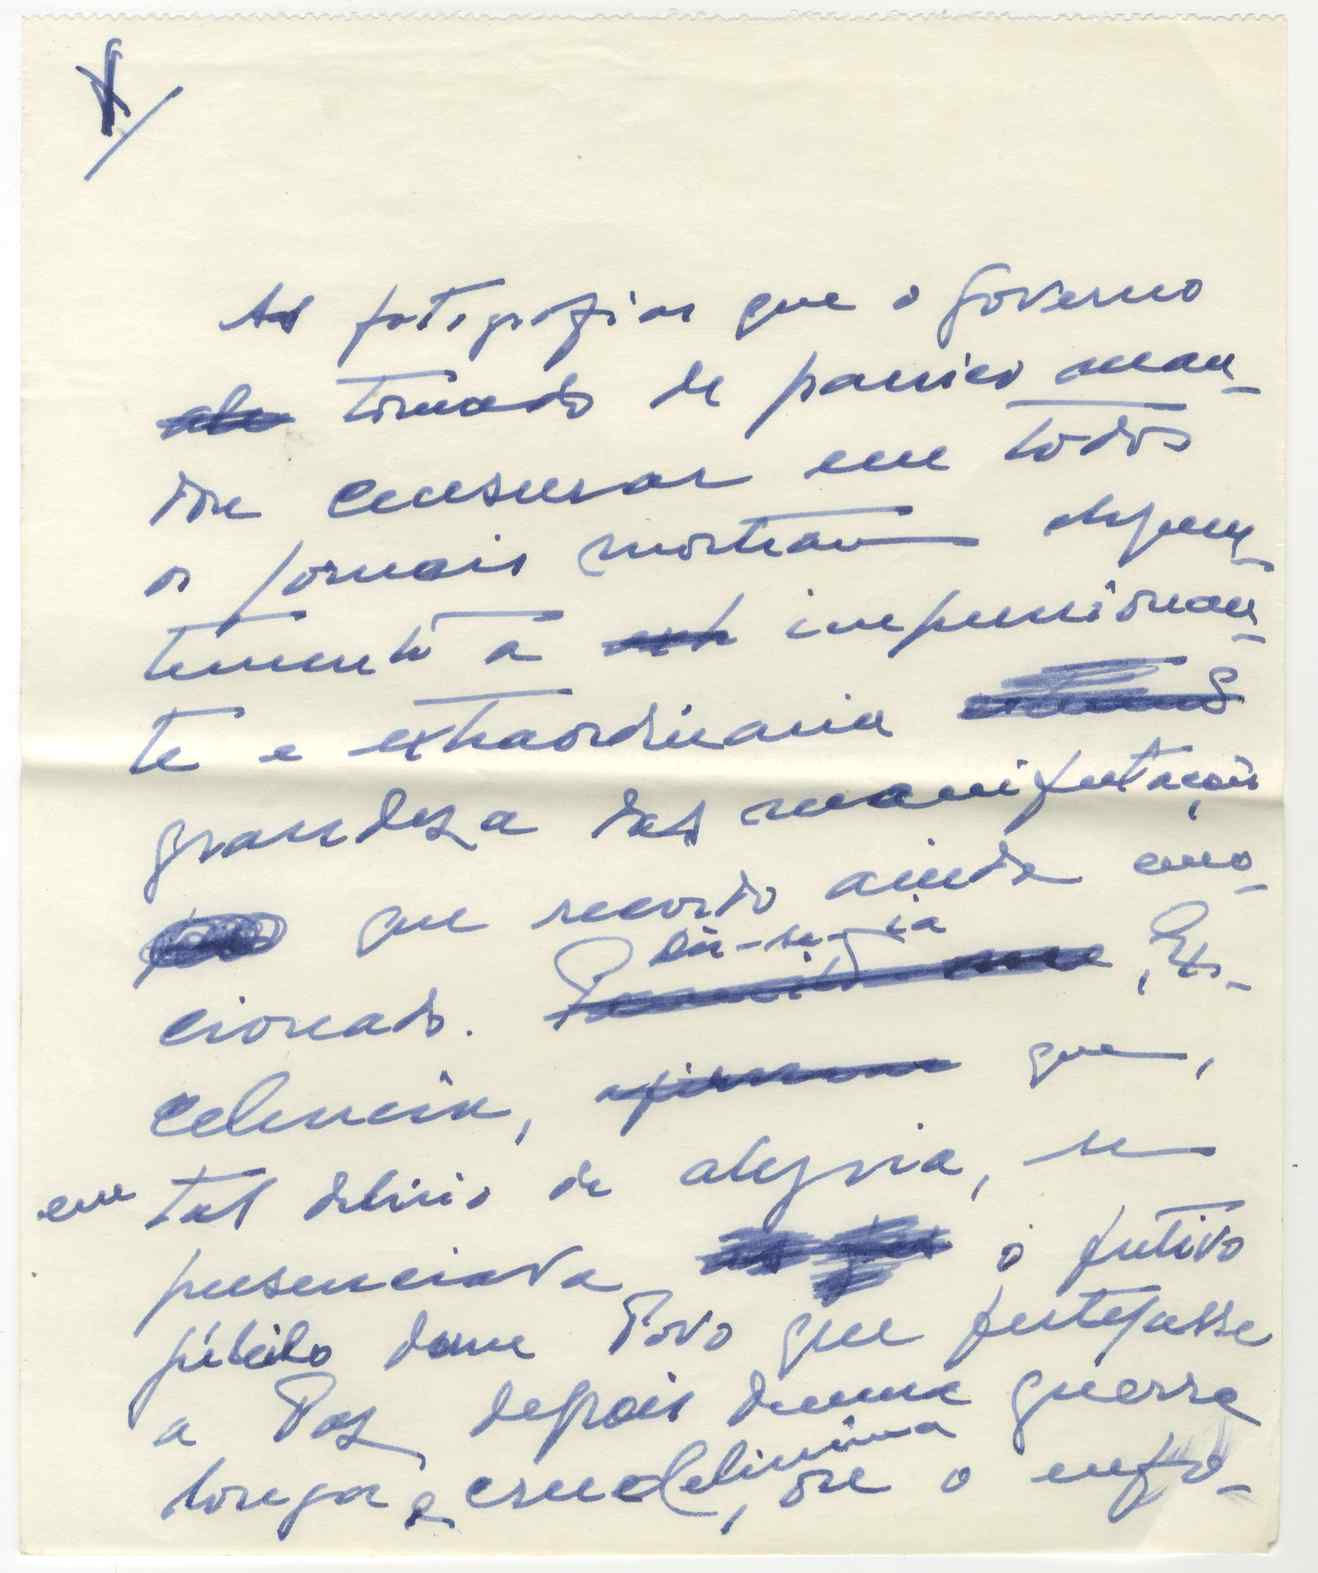 As fotografias que o Governo
tomado de panico man-
dou censurar em todos
os jornais mostram eloquen-
temente a impressionan-
te e extraordinaria
grandeza das manifestações
que recordo ainda emo-
cionado. Dir-se-ia, Ex-
celencia, que,
em tal delirio de alegria, se
presenciava o festivo
júbilo dum Povo que festejasse
a Paz, depois duma guerra
longa e cruelissima, ou o